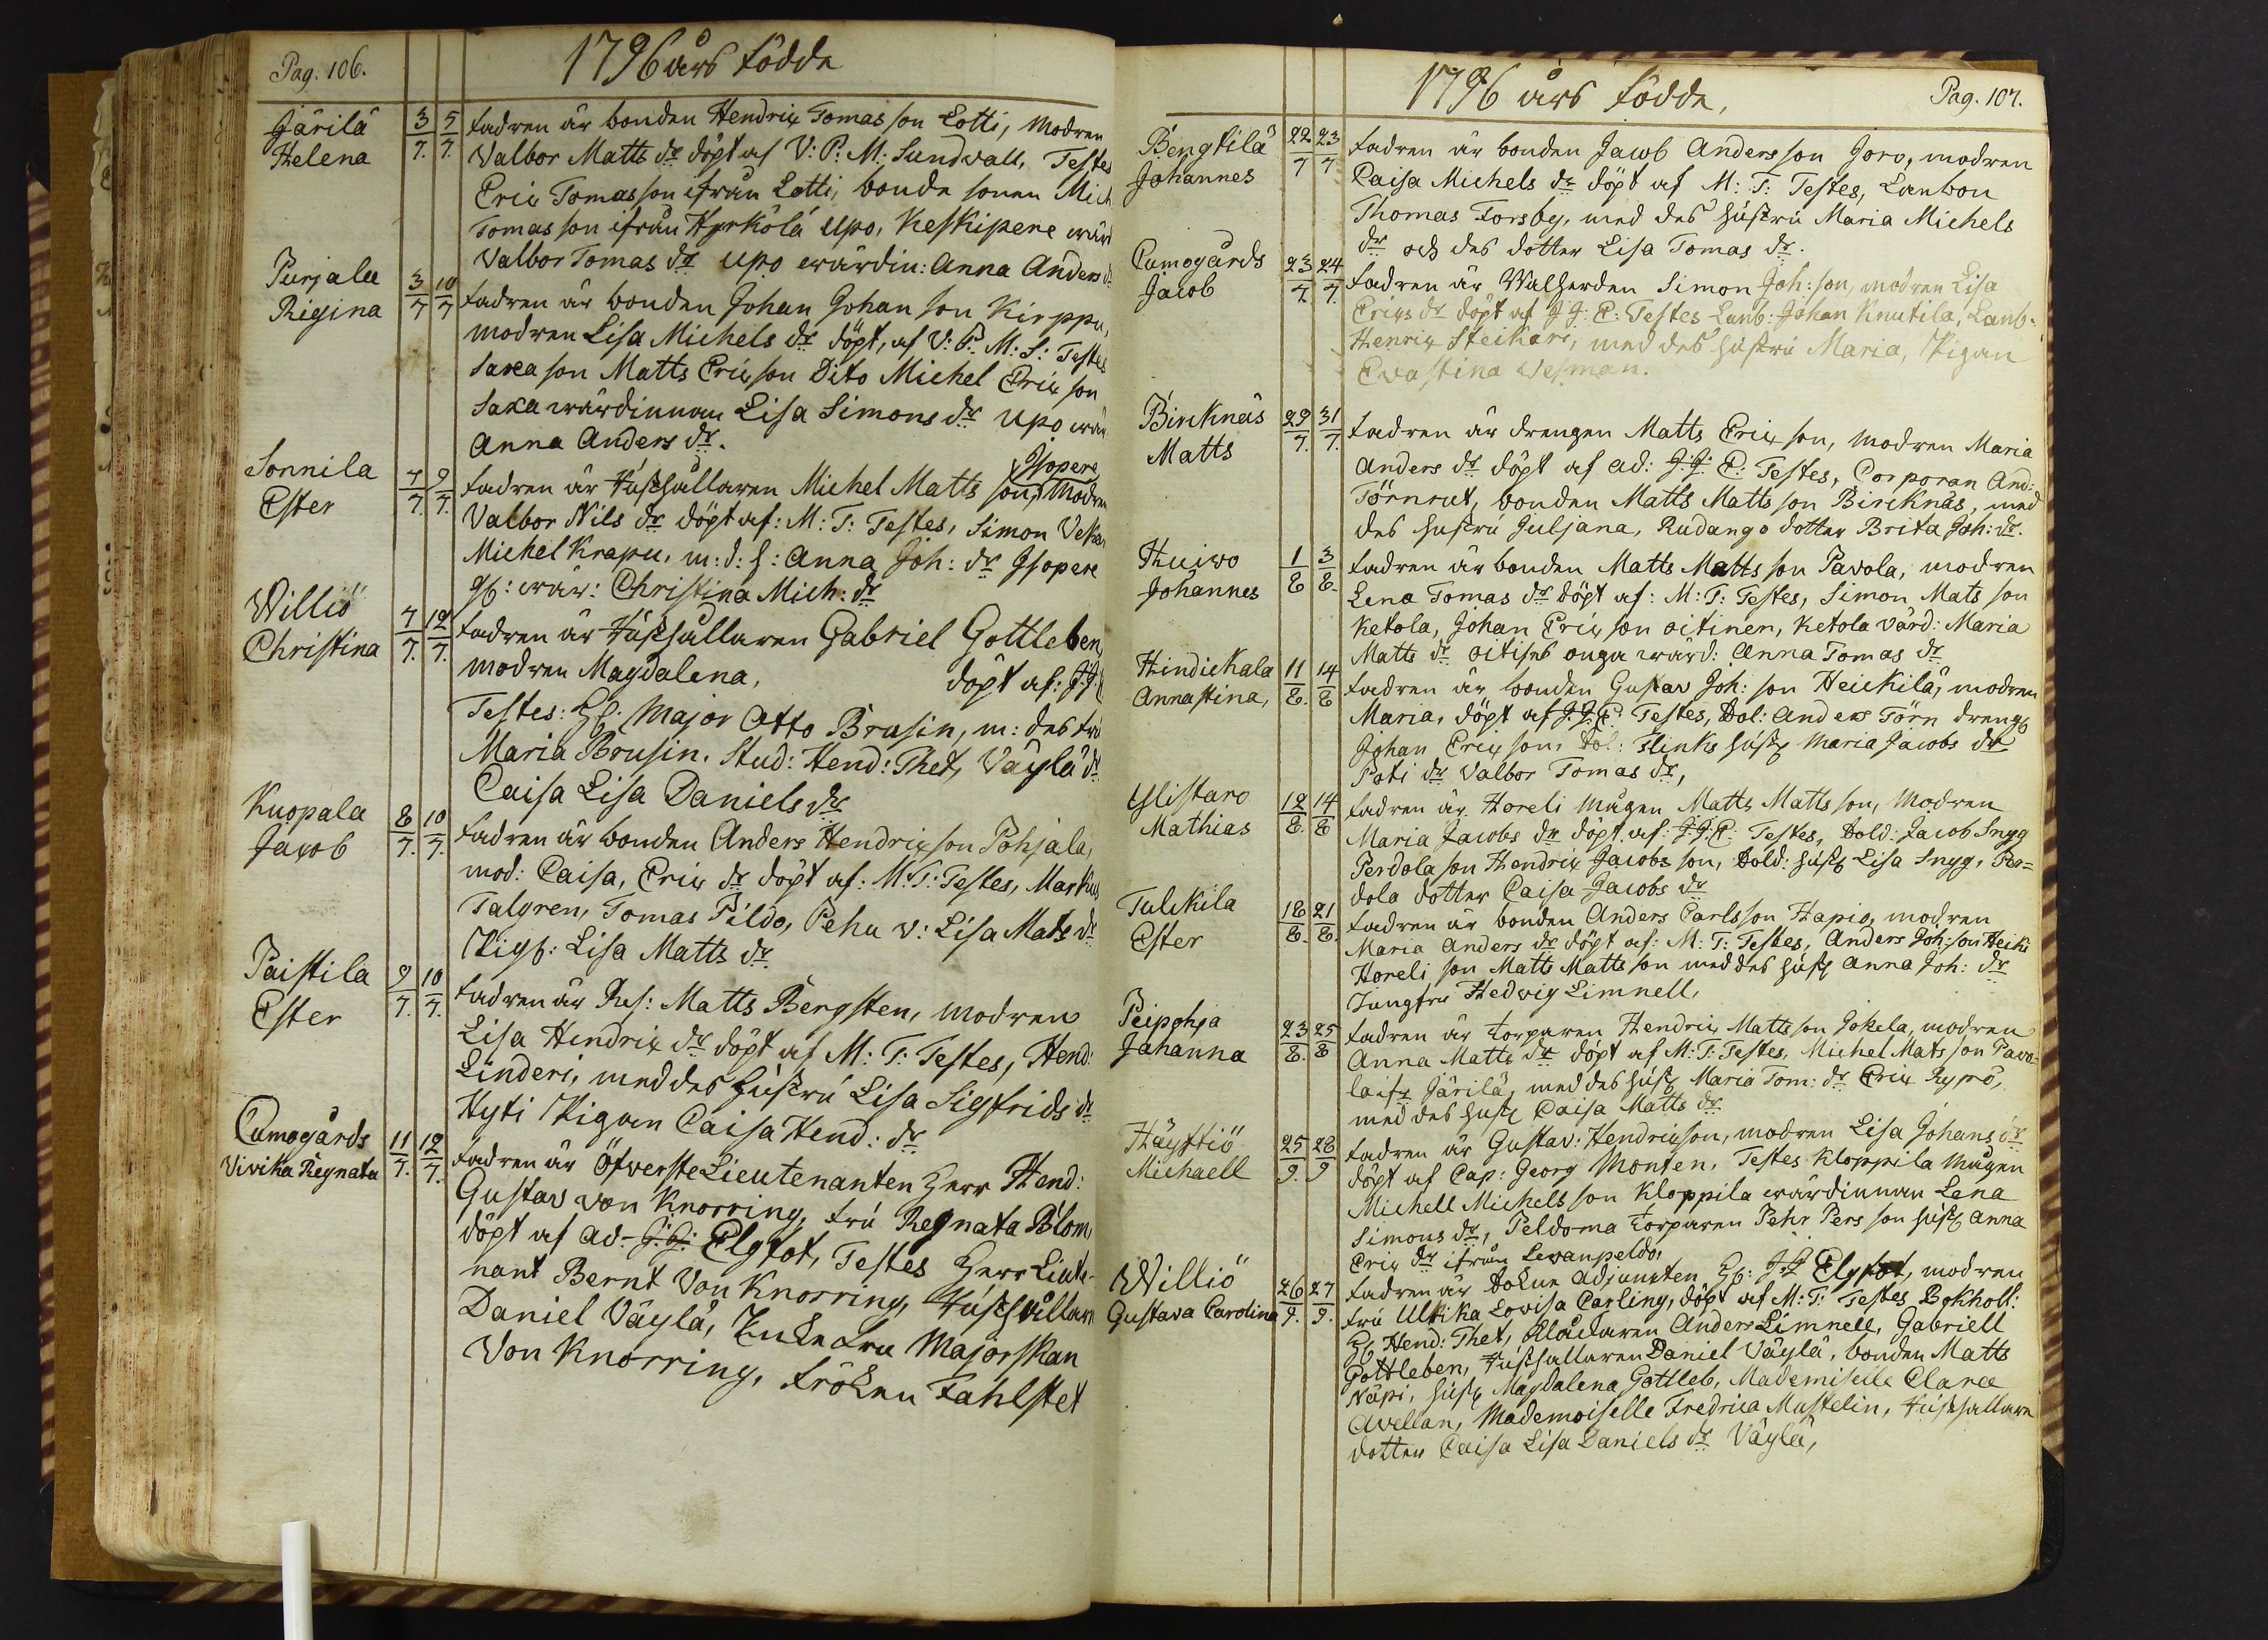 Pag. 106.
1796 års födde
Järilä
Helena
3/7. 5/7.
fadren är bonden Hendric Tomas son Lotti, modren
Valbor Matts dr döpt af V: P: M: Sundvall, Testes
Eric Tomas son ifrån Lotti, bonde sonen Mich
Tomas son ifrån Hyrkölä Upo, Keskipere wärd
Valbor Tomas dr Upo wärdin: Anna Anders d
Purjala
Rigina
3/7 10/7
fadren är bonden Johan Johan son Kirppu,
modren Lisa Michels dr döpt, af V: P: M: S: Testes
Saxa son Matts Ericson Dito Michel Eric son
Saxa wärdinnan Lisa Simons dr Upo wär
Anna Anders dr.
Sonnila
Ester
7/7. 9/7.
Isopere
fadren är Hushållaren Michel Matts son, modren
Valbor Nils dr döpt af: M: T: Testes, Simon
Michel Krapu, m: d: h: Anna Joh: dr Isopere
wär: Christina Mich: dr
Williö
Christina
7/7. 12/7.
fadren är Hushållaren Gabriel Gottleben,
modren Magdalena, döpt af: J:J:
Testes: Hr: Major Otto Brusin, m: des fru
Maria Brusin. Stud: Hend: Thet, Väylä dr
Caisa Lisa Daniels dr
Kuopala
Jacob
8/7. 10/7.
fadren är bonden Anders Hendricson Pohjala,
mod: Caisa, Eric dr döpt af: M: T: Testes, Markus
Talgren, Tomas Pildo, Pehu v: Lisa Mats dr
Pigh: Lisa Matts dr
Paistila
Ester
9/7. 10/7.
fadren är Ref: Matts Bergsten, modren
Lisa Hendric dr döpt af M: T: Testes, Hend:
Linderi, med des hustru Lisa Sigfrids dr
Hyti Pigan Caisa Hend: dr
Cumogårds
Vivika Regnata
11/7. 12/7.
fadren är ÖfwersteLieutenanten Herr Hend:
Gustav von Knorring, fru Regnata Blom,
döpt af ad- J: J: Elgfot, Testes Herr Lieute-
nant Bernt Von Knorring, Hushållarn
Daniel Väylä, Enke fru Majorskan
Von Knorring, fröken Fahlstet
1796 års födde,
Pag. 107.
Bengtilä
Johannes
22/7 23/7
fadren är bonden Jacob Anders son Joro, modren
Caisa Michels dr döpt af M: T: Testes, Lanbon
Thomas Forsby, med des hustru Maria Michels
dr och des dotter Lisa Tomas dr.
Cumogårds
Jacob
23/7. 24/7.
fadren är Walherden Simon Joh: son, modren Lisa
Erics dr döpt af J J: E: Testes Lanb: Johan Knutila, Lanb:
Henric Steikare, med des hustru Maria, Pigan
Ewastina Wesman.
Bircknäs
Matts
29/7. 31/7.
fadren är drengen Matts Eric son, modren Maria
Anders dr döpt af ad: J: J: E: Testes, Corporan And:
Törnrut, bonden Matts Matts son Bircknäs, med
des hustru Juljana, Rudango dotter Brita Joh: dr.
Huiwo
Johannes
1/8 3/8.
fadren är bonden Matts Matts son Pavola, modren
Lena Tomas dr döpt af: M: T: Testes, Simon Mats son
Ketola, Johan Eric son Oitinen, Ketola värd: Maria
Matts dr Oitises unga wärd: Anna Tomas dr
Hindickala
Annastina,
11/8. 14/8
fadren är bonden Gustav Joh: son Heickilä, modren
Maria, döpt af J. J. E: Testes, Dol: Anders Törn dreng
Johan Eric son, Dol: Flinks hust Maria Jacobs dr
Poti dr Valbor Tomas dr,
Ylistaro
Mathias
12/8. 14/8
fadren är Horeli mågen Matts Matts son, modren
Maria Jacobs dr döpt af: J: J: E: Testes, Dold: Jacob Snyg
Perdola son Hendric Jacobs son, Dold: hust Lisa Snyg, Per=
dola dotter Caisa Jacobs dr
Tulckila
Ester
18/8. 21/8.
fadren är bonden Anders Carlsson Hapio, modren
Maria Anders dr döpt af: M: T: Testes, Anders Joh: son Heiki
Horeli son Matts Matts son med des hust Anna Joh: dr
Jungfru Hedvig Limnell,
Peipohja
Johanna
23/8. 25/8
fadren är torparen Hendric Matts son Jokela, modren
Anna Matts dr döpt af M: T: Testes, Michel Mats son Pavo-
la ifr Järilä, med des hust Maria Tom: dr Eric Rypö,
med des hust Caisa Matts dr
Häystiö
Michaell
25/9. 28/9
fadren är Gustav: Hendricson, modren Lisa Johans dr
döpt af Cap: Georg Monten, Testes Kloppila mågen
Michell Michels son Kloppila wärdinnan Lena
Simons dr, Peldoma torparen Pehr Pers son hust Anna
Eric dr ifrån Levanpeldo,
Williö
Gustava Carolina
26/9. 27/9.
fadren är Sokne Adjuncten Hr: J. J Elgfot, modren
fru Ulrika Lovisa Carling, döpt af M: T: Testes Bokholl:
Hr Hend: Thet, Klåckaren Anders Limnell, Gabriell
Gottleben, Hushållaren Daniel Väylä, bonden Matts
Näpi, hust Magdalena Gottleb, Mademiselle Clara
Avellan, Mademoiselle Fredrica Mustelin, Hushållarn
dotter Caisa Lisa Daniels dr Väylä,